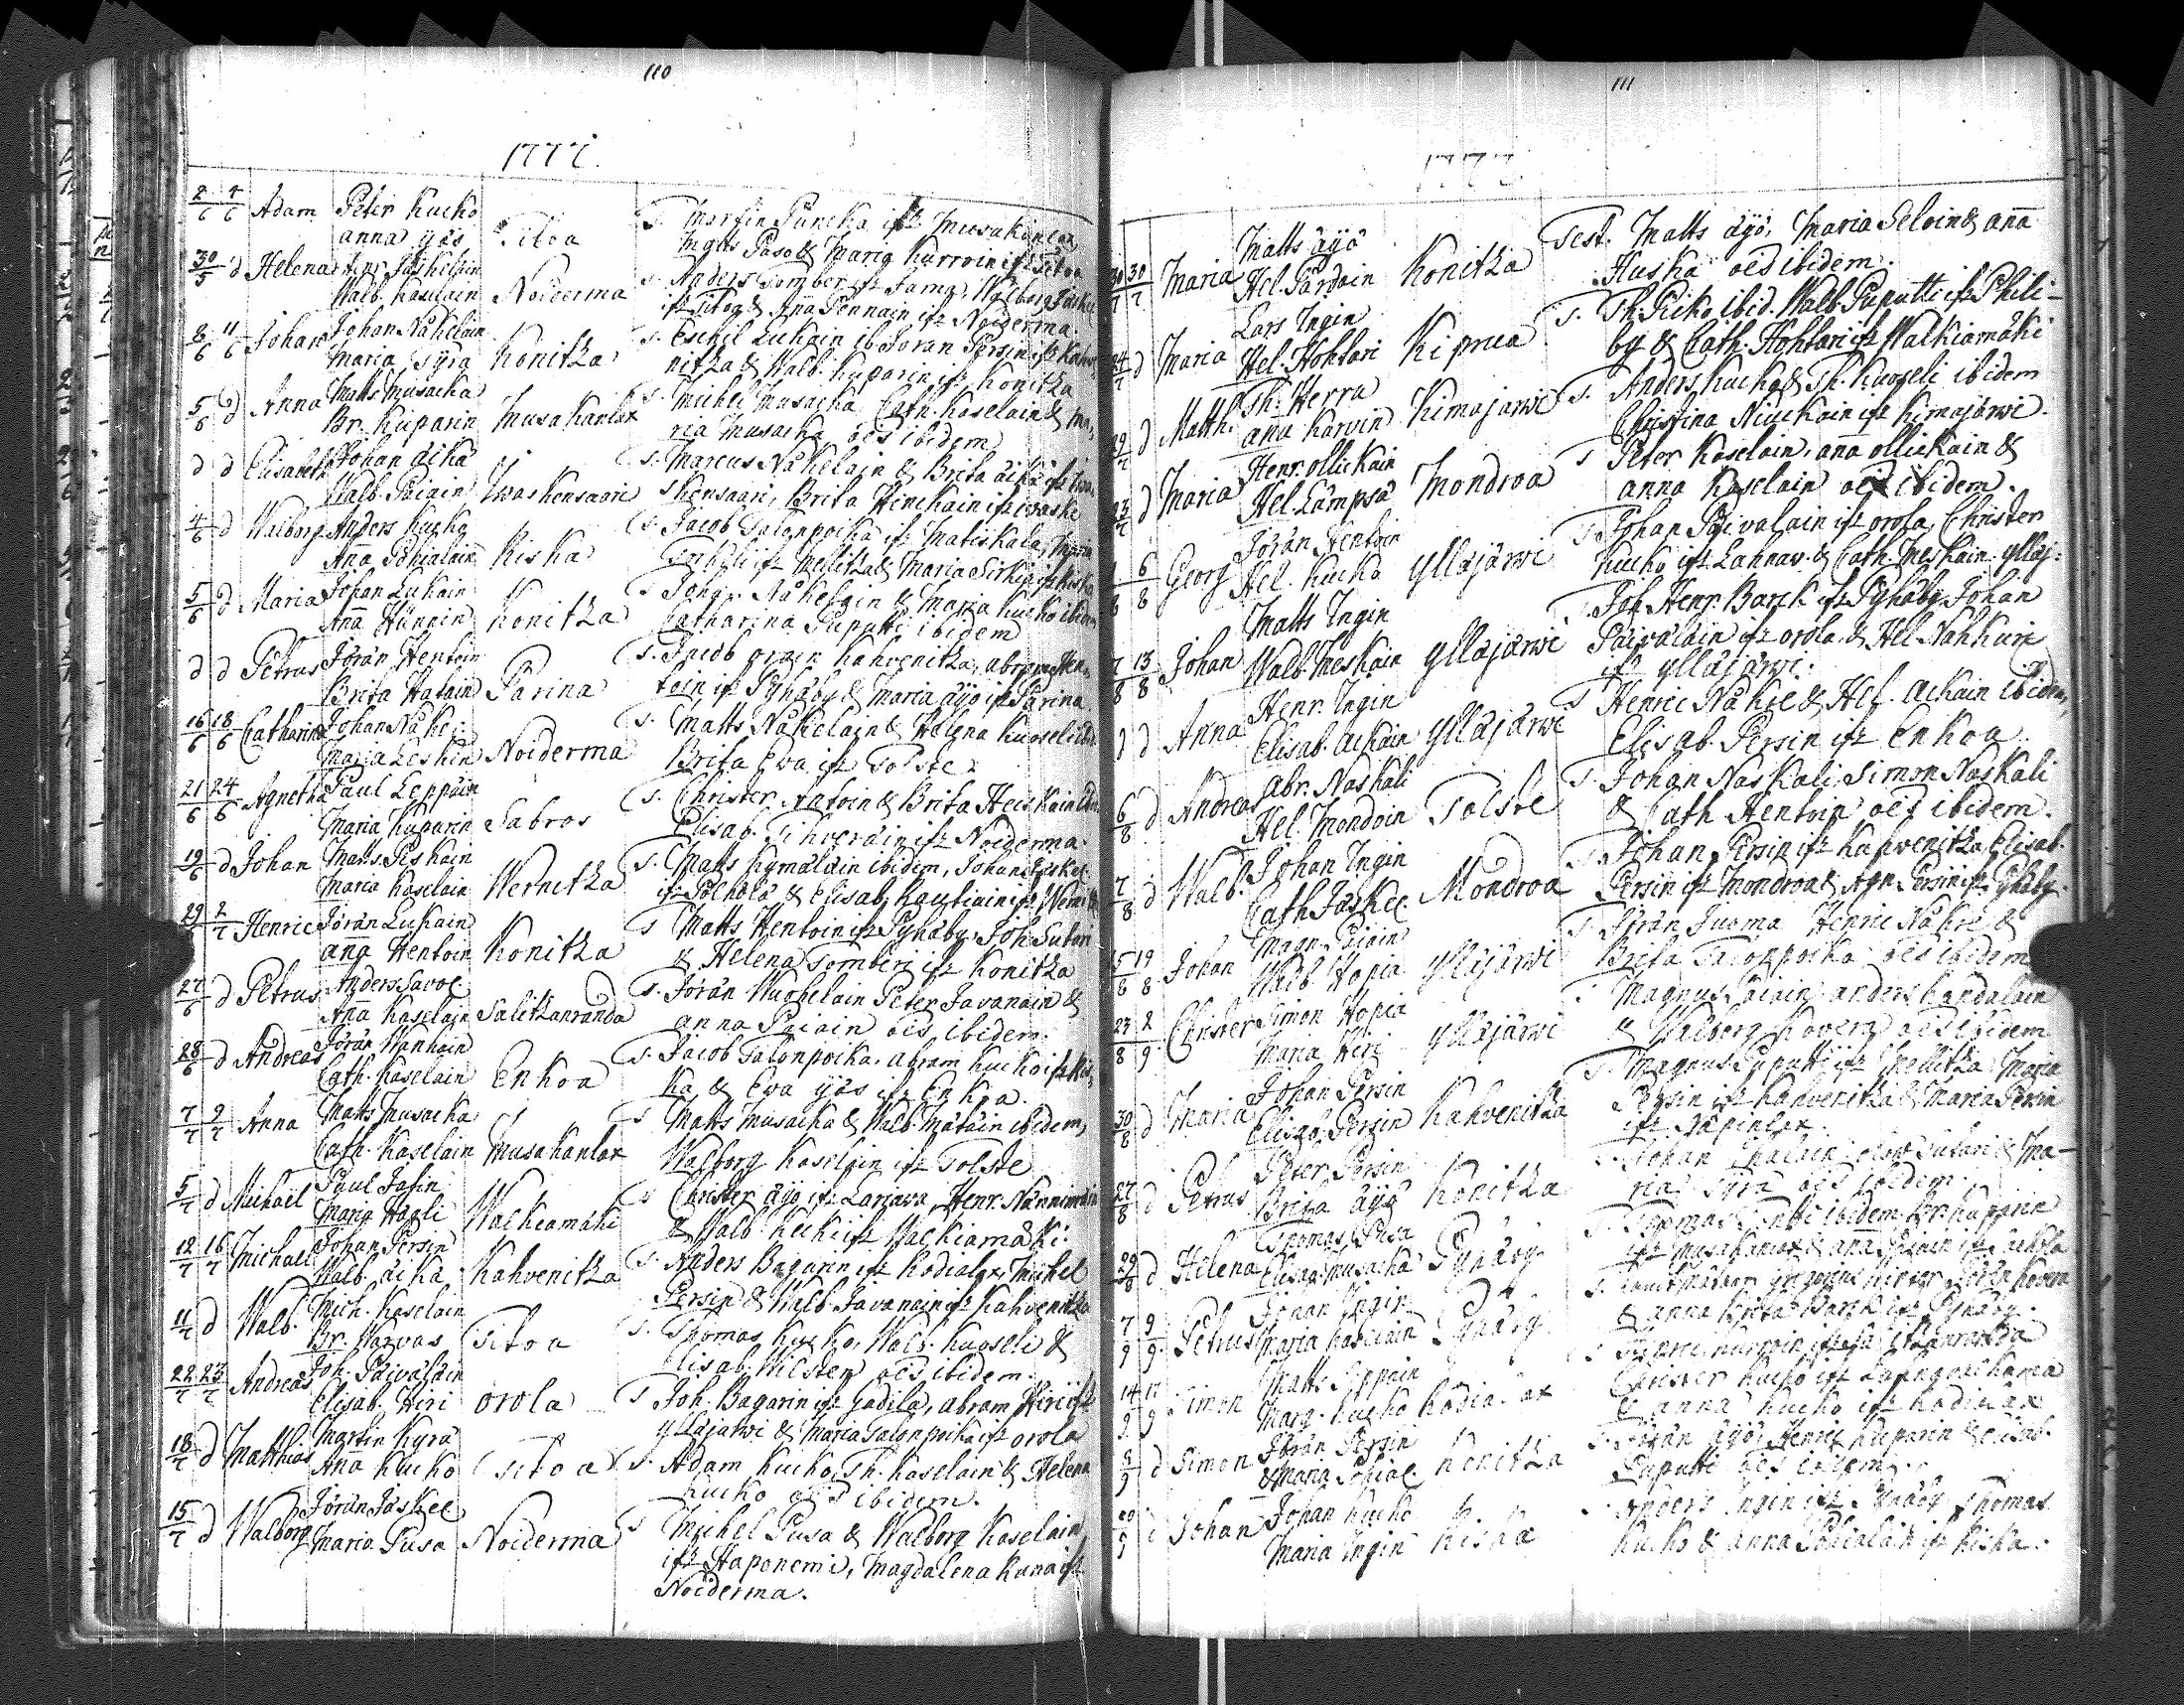 110
1777.
2/6 4/6 Adam Peter Kucko
anna yäs Sitoa
T. Martin Puncka ifr Musakanlax
Matts Paso & Maria Kurroin ifr Sitoa
30/5 d Helena Henr. Jäskeläin
Walb. Kaselain Noiderma
T. Anders Tomber ifr Walborg Jäskel.
ifr Sitoa & Aña Pennain ifr Noiderma.
8/6 11/6 Johan Johan Näkeläin
Maria Syrä Konitza
T. Eschil Luckain ib. Jöran Persin ifr Kahve-
nitza & Walb. Kuparin ifr Konitza
5/6 d Anna Matts Musacka
Br. Kuparin Musakanlax
T. Michel Musacka Cath. Kaselain & Ma-
ria Musacka oēs ibidem
d d Elisabeth Johan äikä
Walb. Paiain Iwaskensaari
T. Marcus Näkelain & Brita äikä ifr Iwa-
skensaari, Brita Hinckain ifr Iwaske
4/6 d Walborg Anders Kucko
Aña Pohialain Kiska
T. Jacob Talonpoika ifr Matiskala, Maria
ifr Mellitza & Maria Sirkiä ifr Kiska
5/6 d Maria Johan Luckain
Aña Hännin Konitza
T. Näkelain & Maria Kucko ibidem
Catharina Puputti ibidem
d d Petrus Jöran Hentoin
Brita Halain Parina
T. Jacob orain Kahvenitza, abram Hen-
toin ifr Pyhäby & Maria äyö ifr Parina
16/6 18/6 Catharina Johan Näke:
Maria Leskin Noiderma
T. Matts Näkelain & Helena Kuoseli ibid.
Brita Eva ifr Tolste
21/6 24/6 Agnetha Paul Leppäin
Maria Kuparin Sabros
T. Christer Antoin & Brita Heiskain ibid.
Elisab. Tihveräin ifr Noiderma.
19/6 d Johan Matts Piskain
Maria Kaselain Wernitza
T. Matts Kymäläin ibidem, Johan Jäskel.
ifr Pölhölä & Elisab. Kautiain ifr Wernitz.
29/6 2/7 Henric Jöran Luckain
aña Hentoin Konitza
T Matts Hentoin ifr Pyhäby, Joh. Sutari
& Helena Tomberi ifr Konitza
27/6 d Petrus Anders Savol.
Aña Kaselain Salitzanranda
T. Jöran Wughelain Peter Javanain &
anna Paiain oēs ibidem
28/6 d Andreas Jöran Wanhain
Cath. Kaselain Enkoa
T. Jacob Talonpoika, abram Kucko ifr Kis-
ka & Eva yäs ifr Enkoa.
7/7 9/7 Anna Matts Musacka
Cath. Kaselain Musakanlax
T Matts Musacka & Walb. Mätäin ibidem,
Walborg Kaselain ifr Tolste
5/7 d Michaël Paul Jäsin
Maria Hagli Walkiamäki
T Christer äyö ifr Lariava, Henr. Nännimäin
& Walb. Kecki ifr Walkiamäki:
12/7 16/7 Michaël Johan Persin
Walb. äikä Kahvenitza
T. Anders Bagarin ifr Kodialax, Michel
Persin & Walb. Javanain ifr Kahvenitza
11/7 d Walb. Mich. Kaselain
Br. Warvas Sitoa
T. Thomas Kucko, Walb. Kuoseli &
Elisab. Wilsten oēs ibidem
22/7 23/7 Andreas Joh. Päiväläin
Elisab. Hiri orola
T Joh. Bagarin ifr Gadila, abram Hiri ifr
ylläjärwi & Maria Talonpoika ifr orola
18/7 d Matthias Martin Kyrä
Aña Kucko Sitoa
T. Adam Kucko, Th. Kaselain & Helena
Kucko oēs ibidem.
15/7 d Walborg Jöran Jäskel.
Maria Pusa Noiderma
T Michel Pusa & Walborg Kaselain
ifr Haponemi, Magdalena Kuna ifr
Noiderma.
111
1777
30/7 30/7 Maria Matts äyö
Hel. Pärdäin Konitza
Test. Matts äyö, Maria Seloin & aña
Huskä oēs ibidem.
24/7 d Maria Lars Ingin
Hel. Hohtari Kiprua
T. Th. Picko ibid. Walb. Puputti ifr Phili-
by & Cath. Hohtari ifr Walkiamäki
29/7 d Matth. Th. Herra
aña Karvin Kimajärwi
T. Anders Kucko & Th. Kuoseli ibidem
Christina Niuckain ifr Kimajärwi.
23/7 d Maria Henr. ollickain
Hel. Lämpsä Mondroa
T Peter Kaselain, aña ollickain &
anna Kaselain oēs ibidem.
1/8 6/8 Georg Jöran Hentoin
Hel. Kucko ylläjärwi
T Johan Päiväläin ifr orola, Christer
Kucko ifr Lahnav. & Cath. Meskain ylläj:
7/8 13/8 Johan Matts Ingin
Walb. Meskain ylläjärwi
T. Joh. Henr. Barck ifr Pyhäby, Johan
Päiväläin ifr orola & Hel. Nahkuri
ifr ylläjärwi.
d d Anna Henr. Ingin
Elisab. Ackain ylläjärwi
T Henric Näkie & Hel. Ackain ibidem,
Elisab. Persin ifr Enkoa.
6/8 d Andreas abr. Naskali
Hel. Mondoin Tolste
T. Johan Naskali, Simon Naskali
& Cath Hentoin oēs ibidem.
7/8 d Walb. Johan Ingin
Cath. Jäskel. Mondroa
T. Johan Persin ifr Kahvenitza, Elisab.
Persin ifr Mondroa & Agn. Persin ifr Pyhäby.
15/8 19/8 Johan Magn. Paiain
Walb. Hopia ylläjärwi
T Jöran Juoma Henric Näkie &
Brita Talonpoika oēs ibidem
23/8 2/9 Christer Simon Hopia
Maria Hiri ylläjärwi
T Magnus Paiain, anders Kandalain
& Walborg Kovera oēs ibidem
30/8 d Maria Johan Persin
Elisab. Persin Kahvenitza
T. Magnus Puputti ifr Mellitza Maria
Persin ifr Kahvenitza & Maria Persin
ifr Näpinlax.
27/8 d Petrus Peter Persin
Brita äyö Konitza
T. Johan olof Sutari & Ma-
ria Syrä oēs ibidem.
29/8 d Helena Thomas Pusa
Elisab. Musacka Pyhäby
T Thomas ibidem, Br. Kuparin
ifr Musakanlax & aña
7/9 9/9 Petrus Johan Ingin
Maria Kaselain Pyhäby
T.
& anna Brita Barck ifr Pyhäby.
14/9 17/9 Simon Matts Leppäin
Marg. Kucko Kodialax
T ifr Salitzanranda
Christer Kucko ifr
& anna Kucko ifr Kodialax
9/9 d Simon Jöran Persin
& Maria Pohial. Konitza
T. Jöran äyö, Henric Kuparin & Elisab.
Puputti oēs ibidem.
20/9 d Johan Johan Kucko
Maria Ingin Kiska
T. Anders Ingin ifr Pyhäby Thomas
Kucko & anna Pohialain ifr Kiska.